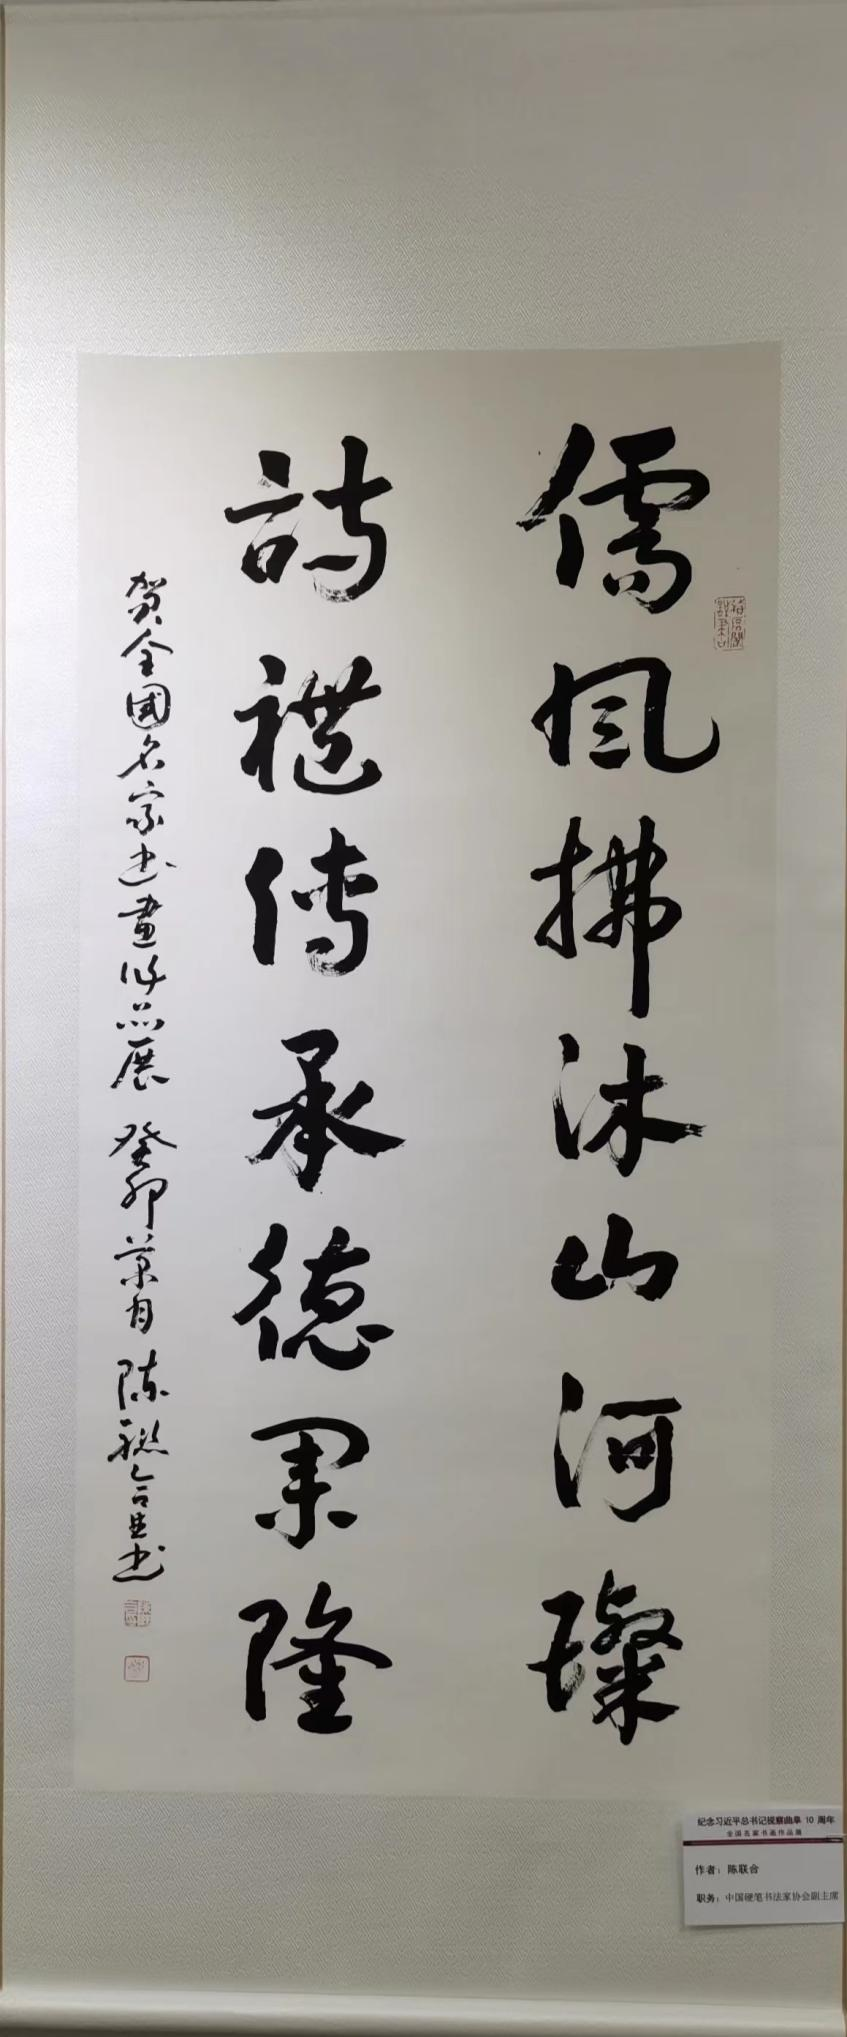 儒风拂沐山河璨
詩禮傳承德業隆
贺全国名家书画作品展 癸卯菊月 陈联合书
纪念习近平总书记视察曲阜 10 周年
全国名家书画作品展
作者：陈联合
职务：中国硬笔书法家协会副主席